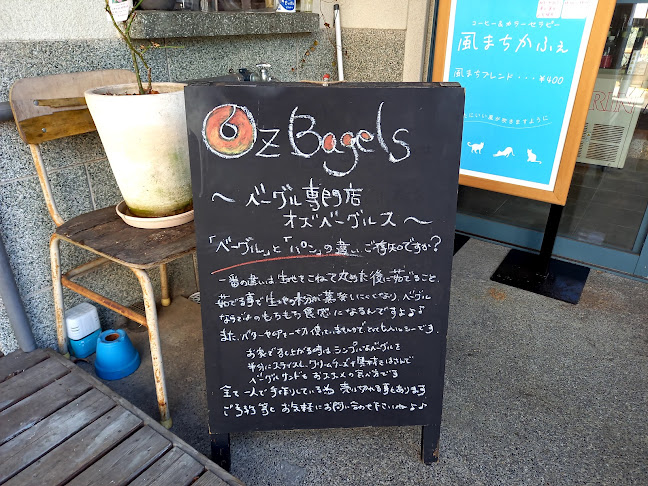 Oz Bagels
～ベーグル専門店
オズベーグルス～
「ベーグル」と「パン」の違いご存知ですか？
一番の違いは生地をこねて丸めた後に茹でること。
茹でる事で生地の水分が蒸発しにくくなり、ベーグル
ならではのもちもち食感になるんですよ♪♪
また、バターやミルク一切使っていませんのでとてもヘルシーです。
お家でめし上がる時はシンプルなベーグルを
半分にスライスし、クリームチーズや具材をはさんで
ベーグルサンドもおススメの食べ方です
全て一人で手作りしている為 売り切れる事もあります
ご予約等も お気軽にお問い合わせ下さいね♪♪
コーヒー&カラーセラピー
風まちかふぇ
風まちブレンド・・・¥400
にいい風が吹きますように